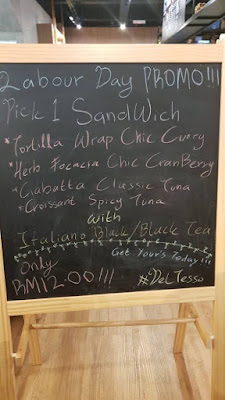 Labour Day PROMO!!!
Pick 1 SandWich
*Tortilla Wrap Chic Curry
*Herb Focacia Chic CranBerry
*Ciabatta Classic Tuna
*Croissant Spicy Tuna
With
Italiano Black/Black Tea
Only Get Your's Today!!!
RM12.00!!! #DeLTesso